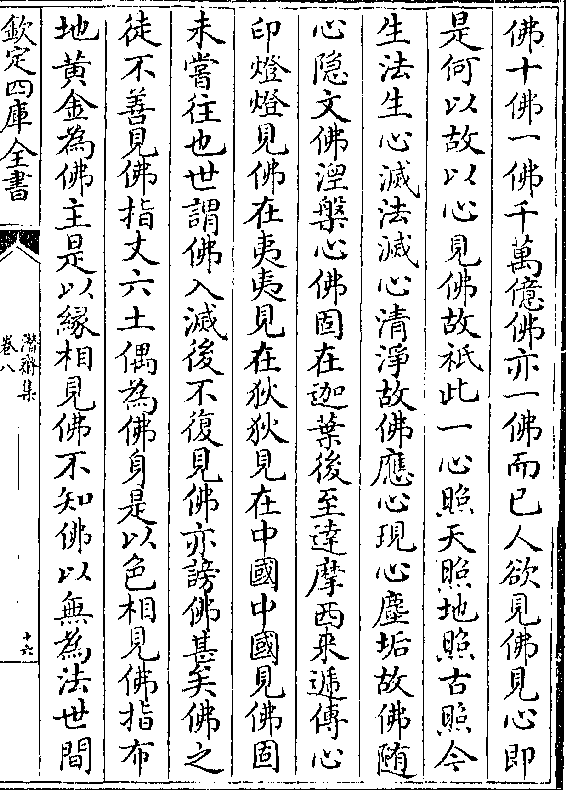 佛十佛一佛千萬億佛亦一佛而已人欲見佛見心即
是何以故以心見佛故祇此一心照天照地照古照今
生法生心滅法滅心清淨故佛應心現心塵垢故佛隨
心隐文佛涅槃心佛固在迦葉後至達摩西來遞傳心
印燈燈見佛在夷夷見在狄狄見在中國中國見佛固
未嘗往也世謂佛入滅後不復見佛亦謗佛甚矣佛之
徒不善見佛指丈六土偶為佛身是以色相見佛指布
地黄金為佛主是以緣相見佛不知佛以無為法世間
欽定四庫全書
潛齋集
卷八
十六